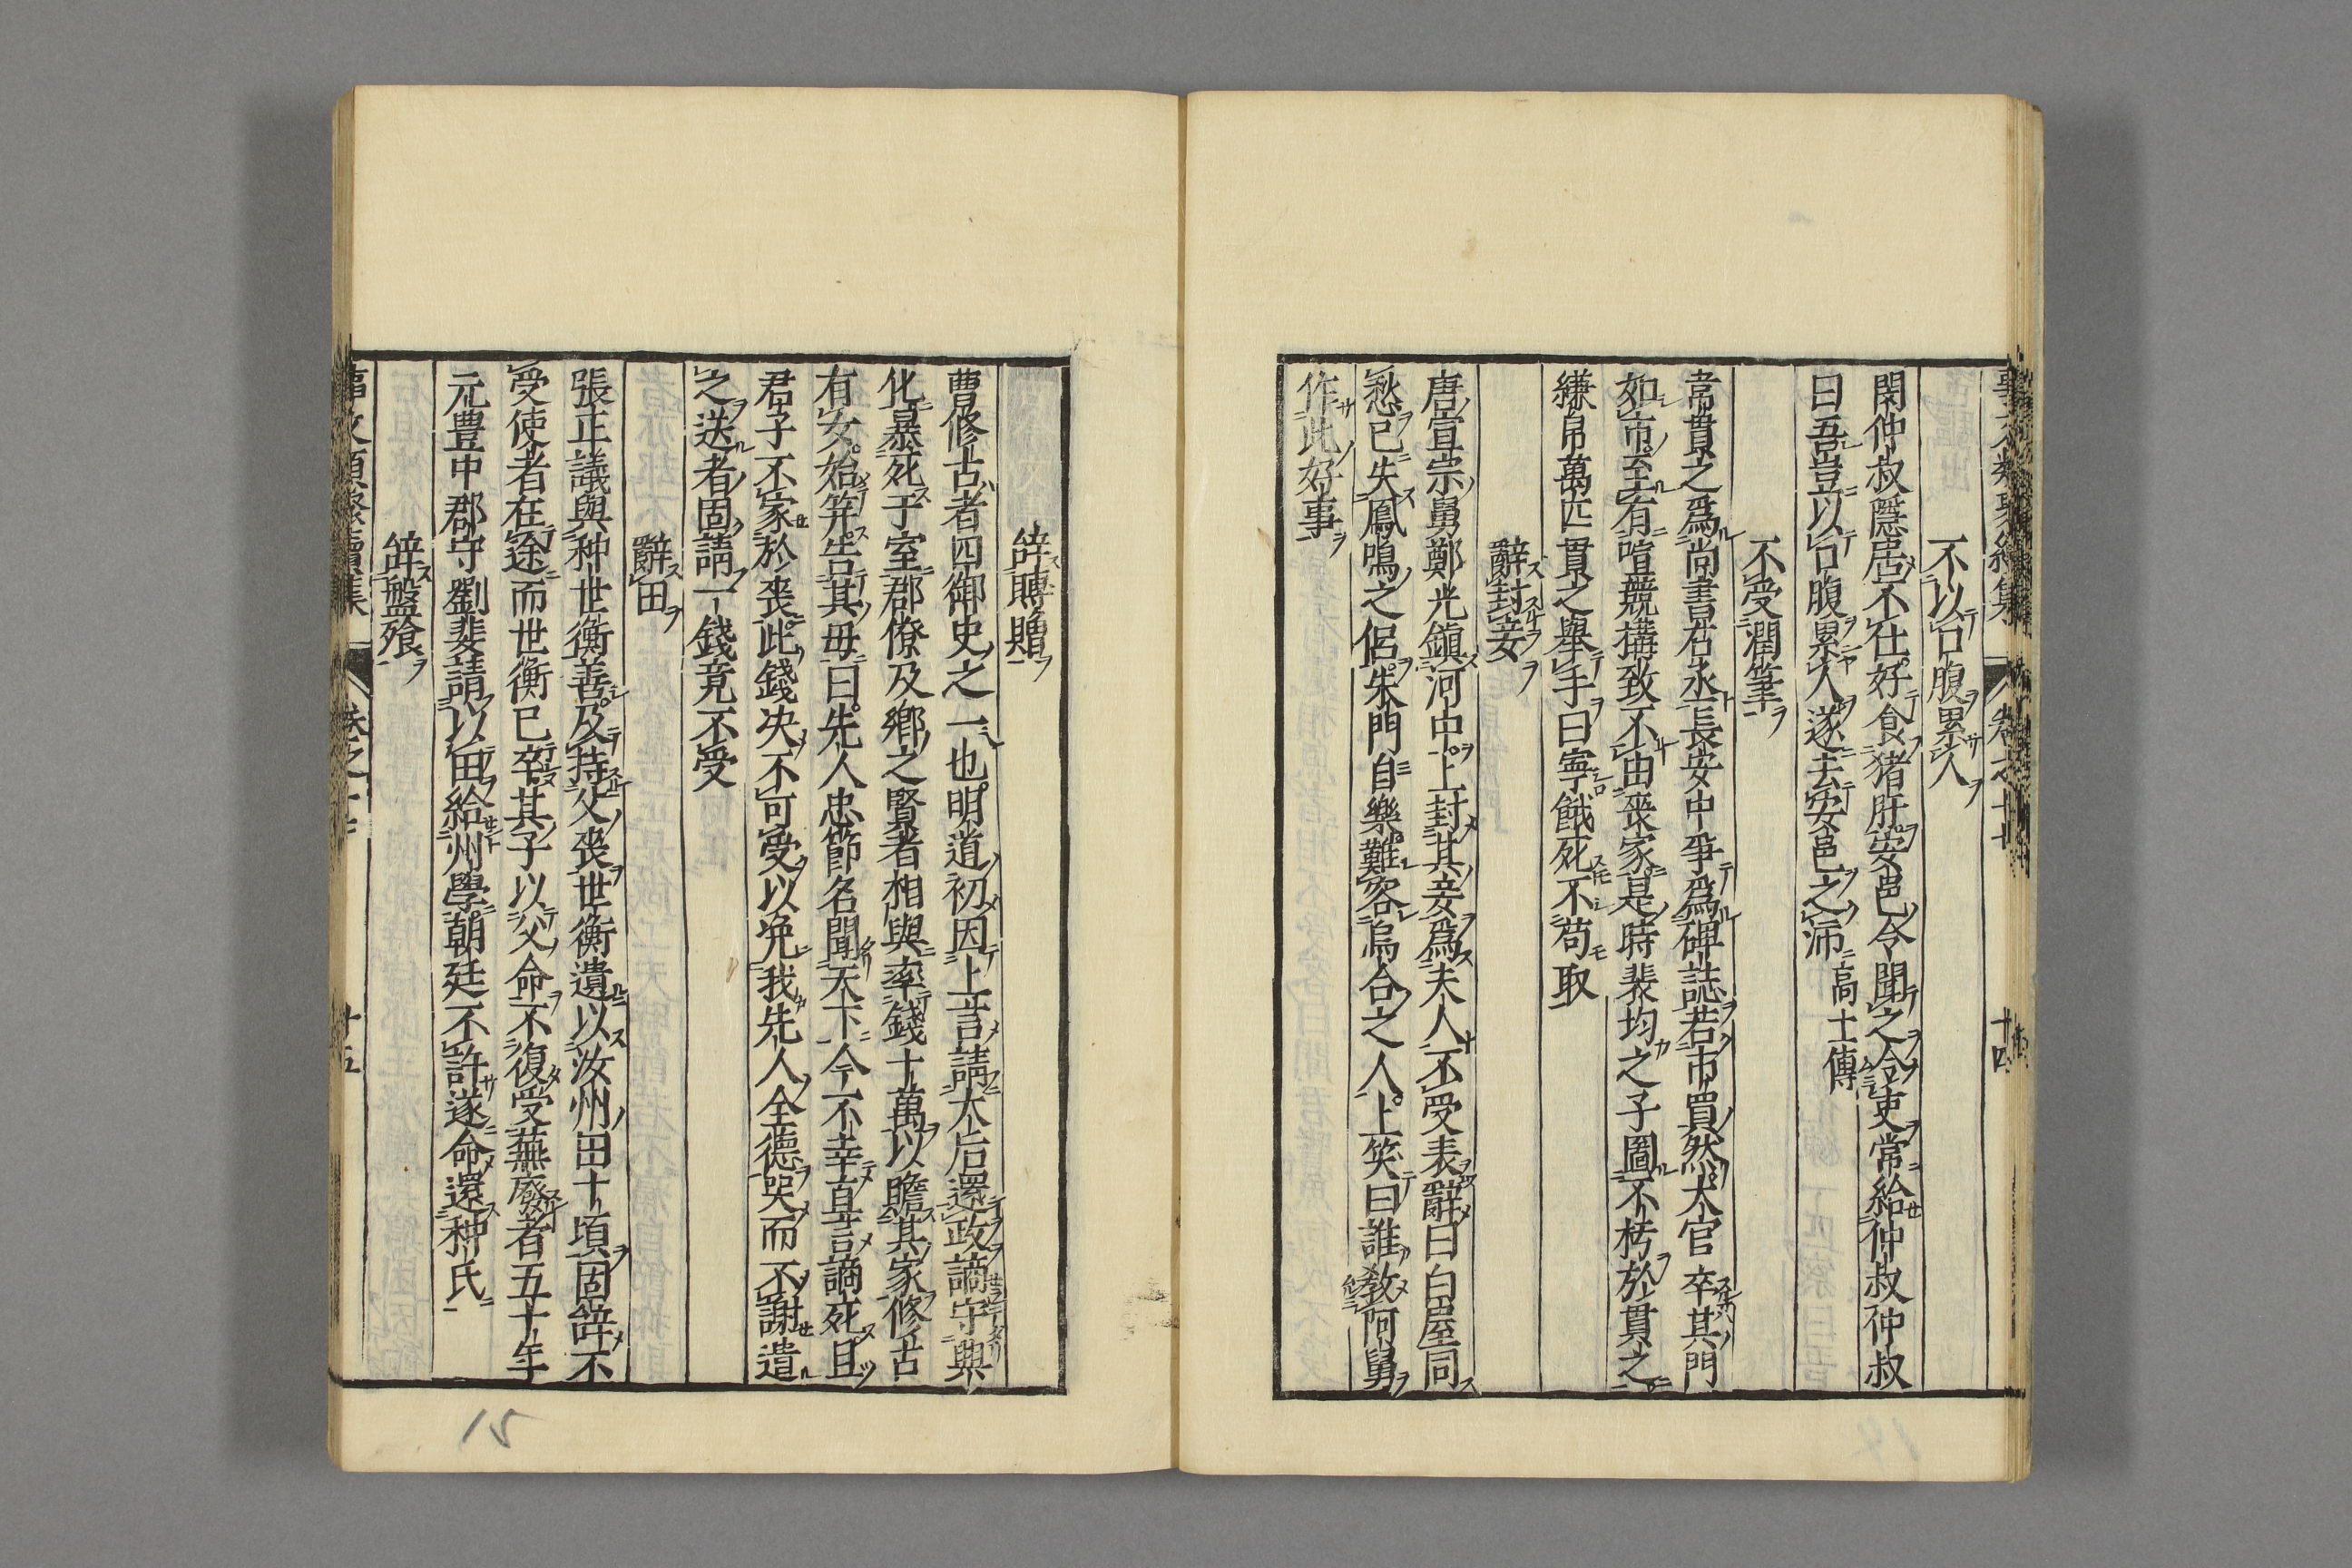 不以口腹累人
閔仲叔隱居不仕好食猪肝安邑令聞之令吏常給仲叔仲叔
曰吾豈以口腹累人遂去安邑之沛 高士傳
不受潤筆
韋貫之爲尚書右丞長安中爭爲碑誌若市買然大官卒其門
如市至有喧競搆致不由喪家是時裴均之子圖不朽於貫之
縑帛萬匹貫之舉手曰寧餓死不苟取
辭封妾
唐宣宗舅鄭光鎮河中上封其妾爲夫人不受表辭曰白屋同
愁已失鳳鳴之侶朱門自樂難容烏合之人上笑曰誰教阿舅
作此好事
辞賻贈
曹修古者四御史之一也明道初因上言請太后還政謫守興
化暴死于室郡僚及鄉之賢者相與率錢十萬以贍其家修古
有女始笄告其毋曰先人忠節名聞天下今不幸直言謫死且
君子不家於喪此錢决不可受以浼我先人全德哭而不謝遣
之送者固請一錢竟不受
辭田
張正議與种世衡善及持父喪世衡遺以汝州田十頃固辞不
受使者在途而世衡已卒其子以父命不復受蕪廢者五十年
元豊中郡守劉斐請以田給州學朝廷不許遂命還种氏
辞盤飱
事文類聚續集 卷之十七 十五
15